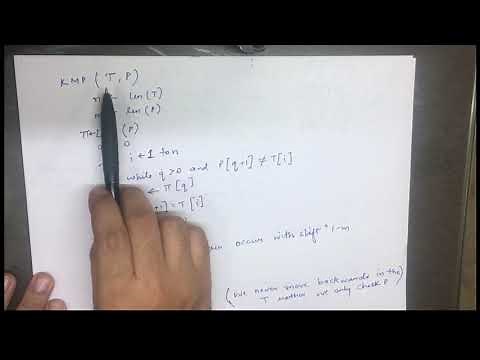 KMP (T, P)
n ← len(T)
len(P)
π ← (P)
0
i ← 1 to n
while q>0 and P[q+1] ≠ T[i]
← π[q]
+1] = T[i]
occurs with shift i-m
(we never move backwards in the
T rather we only check P)